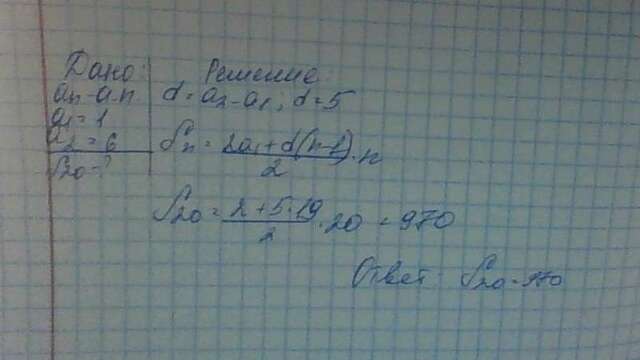 Дано:
aₙ - а.п
a₁ = 1
a₂ = 6
S₂₀ - ?
Решение:
d = a₂ - a₁; d = 5
Sₙ = (2a₁ + d(n-1))/2 · n
S₂₀ = (2 + 5·19)/2 · 20 = 970
Ответ: S₂₀ = 970